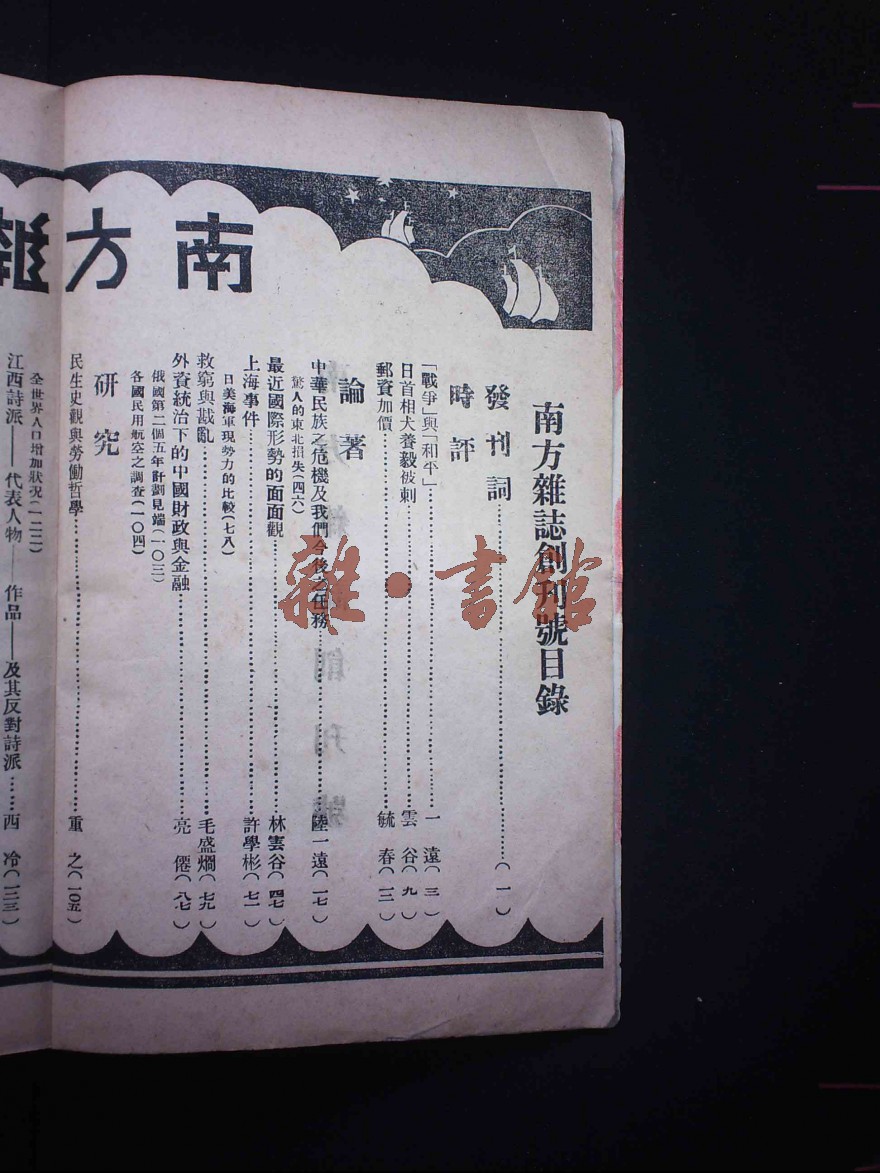 南方雜
南方雜誌創刊號目錄
發刊詞……(一)
時評
「戰爭」與「和平」……一 遠(三)
日首相犬養毅被刺……雲 谷(九)
郵資加價……毓 春(一二)
論著
中華民族之危機及我們今後之任務……陸一遠(一七)
驚人的東北損失(四六)
最近國際形勢的面面觀……林雲谷(四七)
上海事件……許學彬(七一)
日美海軍現勢力的比較(七八)
救窮與戡亂……毛盛烱(七九)
外資統治下的中國財政與金融……亮 僊(八七)
俄國第二個五年計劃見端(一〇三)
各國民用航空之調查(一〇四)
研究
民生史觀與勞働哲學……重 之(一〇五)
全世界人口增加狀況(一二二)
江西詩派——代表人物——作品——及其反對詩派……西 冷(一二三)
雜·書館